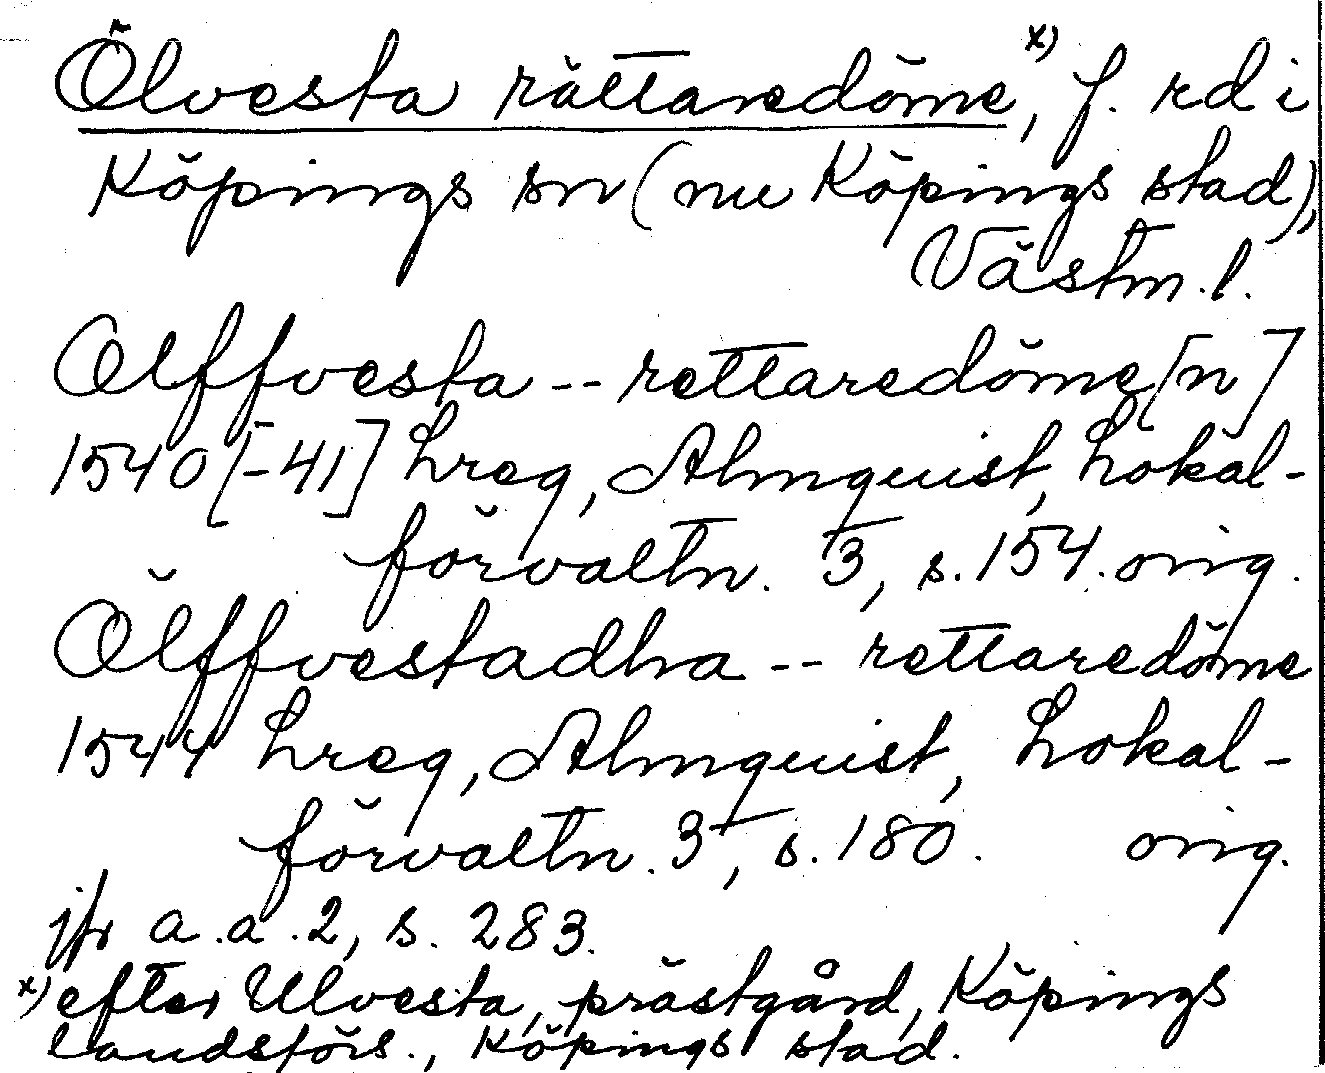 Ölvesta rättaredöme,ˣ⁾ f. rd i
Köpings sn (nu Köpings stad),
Västm.l.
Olffvesta -- rettaredöme[n]
1540[-41] hreg, Almquist, Lokal-
förvaltn. 3, s.154. orig.
Ölffvestadha -- rettaredöme
1544 hreg, Almquist, Lokal-
förvaltn. 3, s.180. orig.
jfr a.a.2, s. 283.
x) efter Ulvesta, prästgård, Köpings
landsförs., Köpings stad.